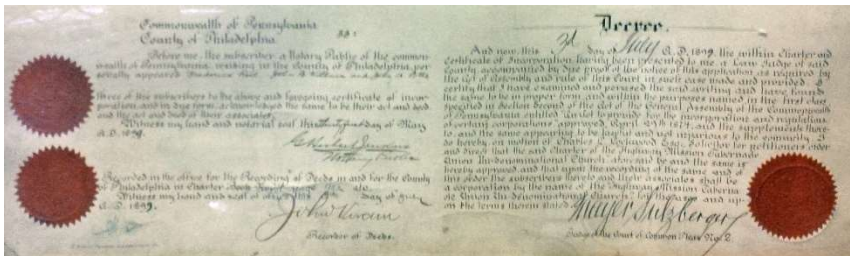 Commonwealth of Pennsylvania
County of Philadelphia
SS:
Before me, the subscriber a Notary Public of the common-
wealth of Pennsylvania, residing in the County of Philadelphia, per-
sonally appeared
three of the subscribers to the above and foregoing certificate of incor-
poration and in due form acknowledged the same to be their act and deed
and the act and deed of their associates.
Witness my hand and notarial seal this day of May
A.D. 1899.
Notary Public
Recorded in the office for the Recording of Deeds in and for the County
of Philadelphia in Charter Book
Witness my hand and seal of office this day of
A.D. 1899.
Recorder of Deeds.
Decree.
And now, this 3d day of July A.D. 1899, the within Charter and
Certificate of Incorporation having been presented to me a Law Judge of said
County accompanied by due proof of the notice of this application as required by
the Act of Assembly and rule of this Court in such case made and provided, I
certify that I have examined and perused the said writing and have found
the same to be in proper form, and within the purposes named in the first class
specified in Section Second of the Act of the General Assembly of the Commonwealth
of Pennsylvania entitled "An Act to provide for the incorporation and regulation
of certain corporations," approved April 29th 1874, and the supplements there-
to, and the same appearing to be lawful and not injurious to the community, I
do hereby, on motion of Charles L. Esq. Solicitor for petitioners order
and direct that the said Charter of the Highway Mission Tabernacle
Union Un-denominational Church aforesaid be and the same is
hereby approved and that upon the recording of the same and of
this order the subscribers thereto and their associates shall be
a corporation by the name of the Highway Mission Taberna-
cle Union Un-denominational Church for the purposes and up-
on the terms therein stated.
Mayer Sulzberger
Judge of the Court of Common Pleas No. 2.